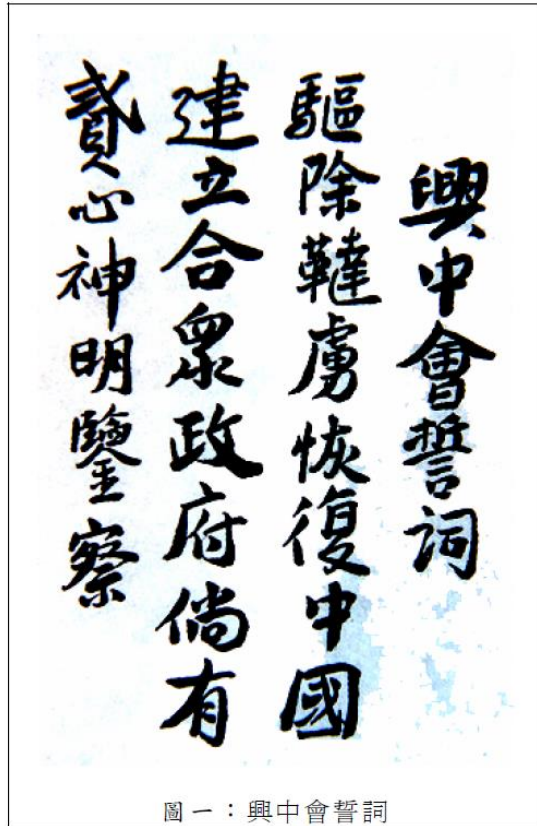 興中會誓詞
驅除韃虜恢復中國
建立合衆政府倘有
貳心神明鑒察
圖一：興中會誓詞